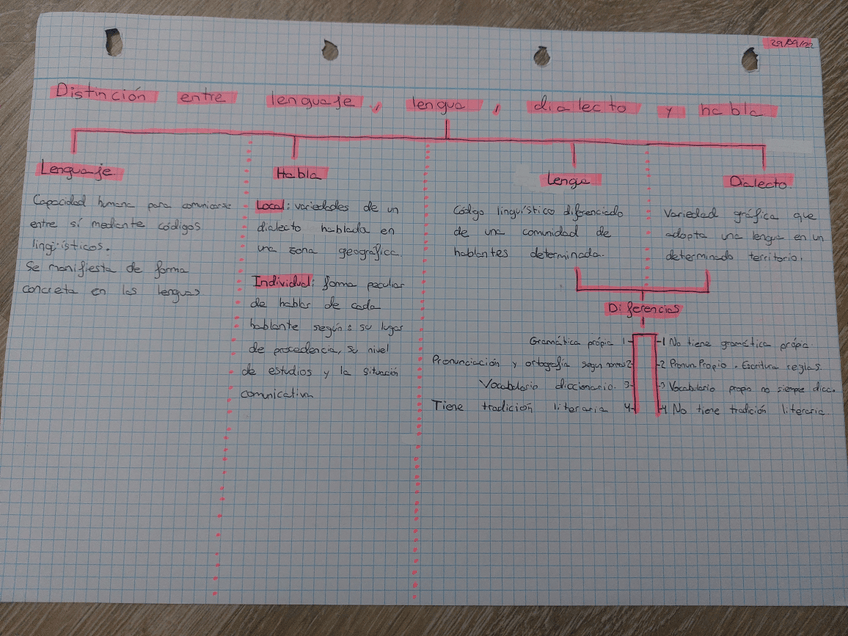 29/09/22
Distinción entre lenguaje, lengua, dialecto y habla
Lenguaje
Capacidad humana para comunicarse
entre sí mediante códigos
lingüísticos.
Se manifiesta de forma
concreta en las lenguas
Habla
Local: variedades de un
dialecto hablada en
una zona geográfica
Individual: forma peculiar
de hablar de cada
hablante según: su lugar
de procedencia, su nivel
de estudios y la situación
comunicativa
Lengua
Código lingüístico diferenciado
de una comunidad de
hablantes determinada.
Dialecto
Variedad gráfica que
adopta una lengua en un
determinado territorio.
Diferencias
Gramática própia 1
Pronunciación y ortografía según normas 2
Vocabulario diccionario. 3
Tiene tradición literaria 4
1 No tiene gramática própia.
2 Pronun. Propia. Escritura reglas.
3 Vocabulario propio no siempre dicc.
4 No tiene tradición literaria